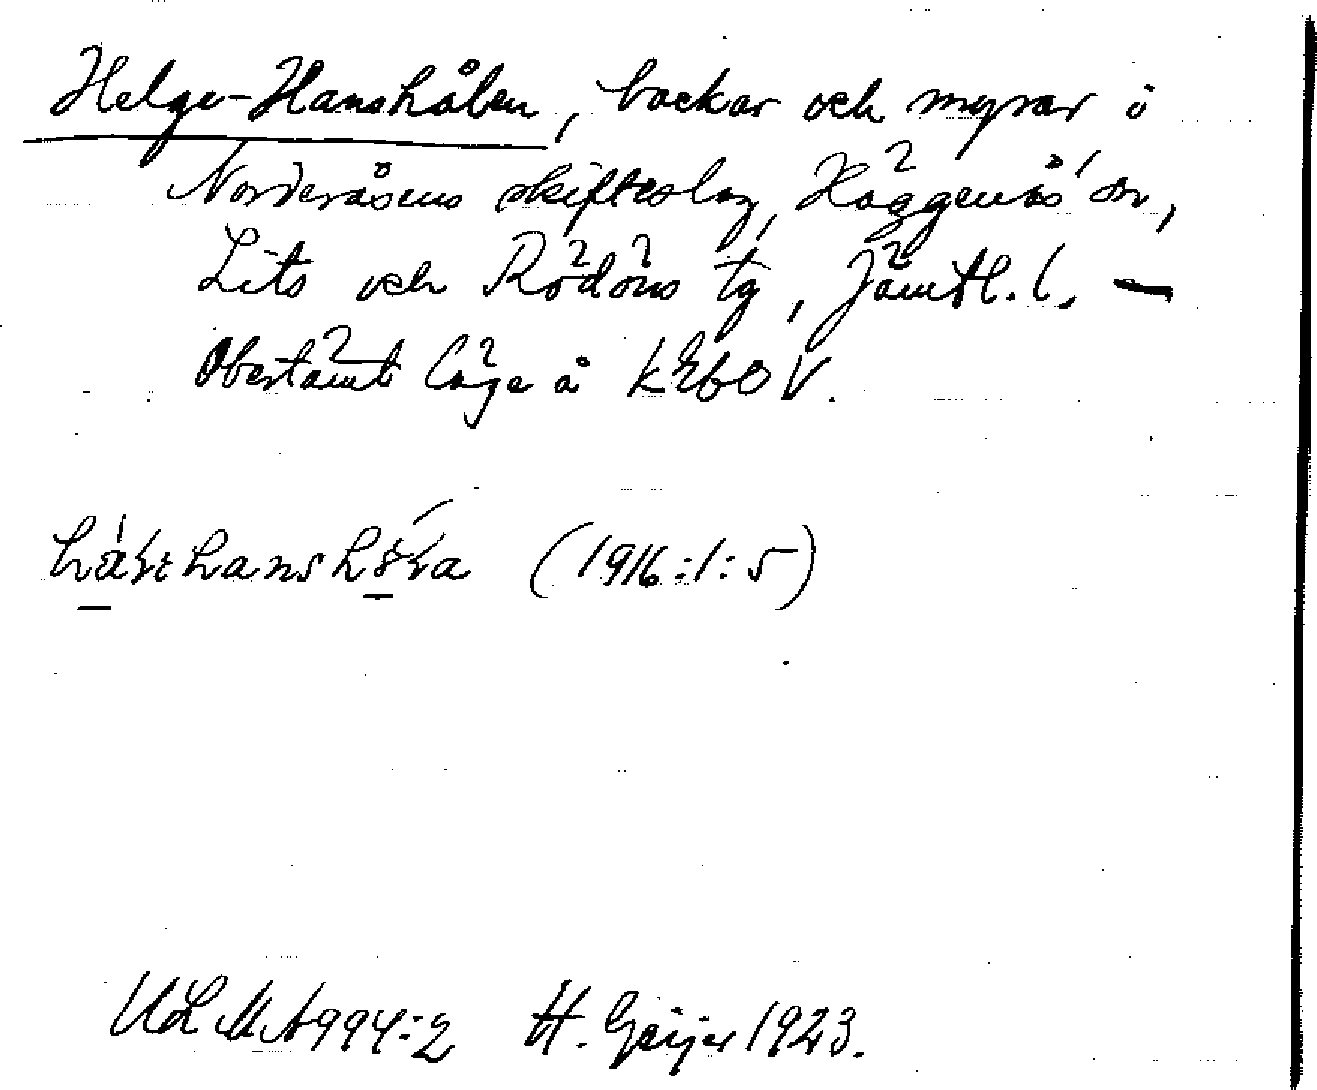 Helge-Hanshålen, backar och myrar i
Norderåsens skifteslag, Häggenås' sn,
Lits och Rödöns tg, Jämtl. l. —
Obestämt läge å kEbO V.
(1916:1:5)
ULMA 994:2 H. Geijer 1923.